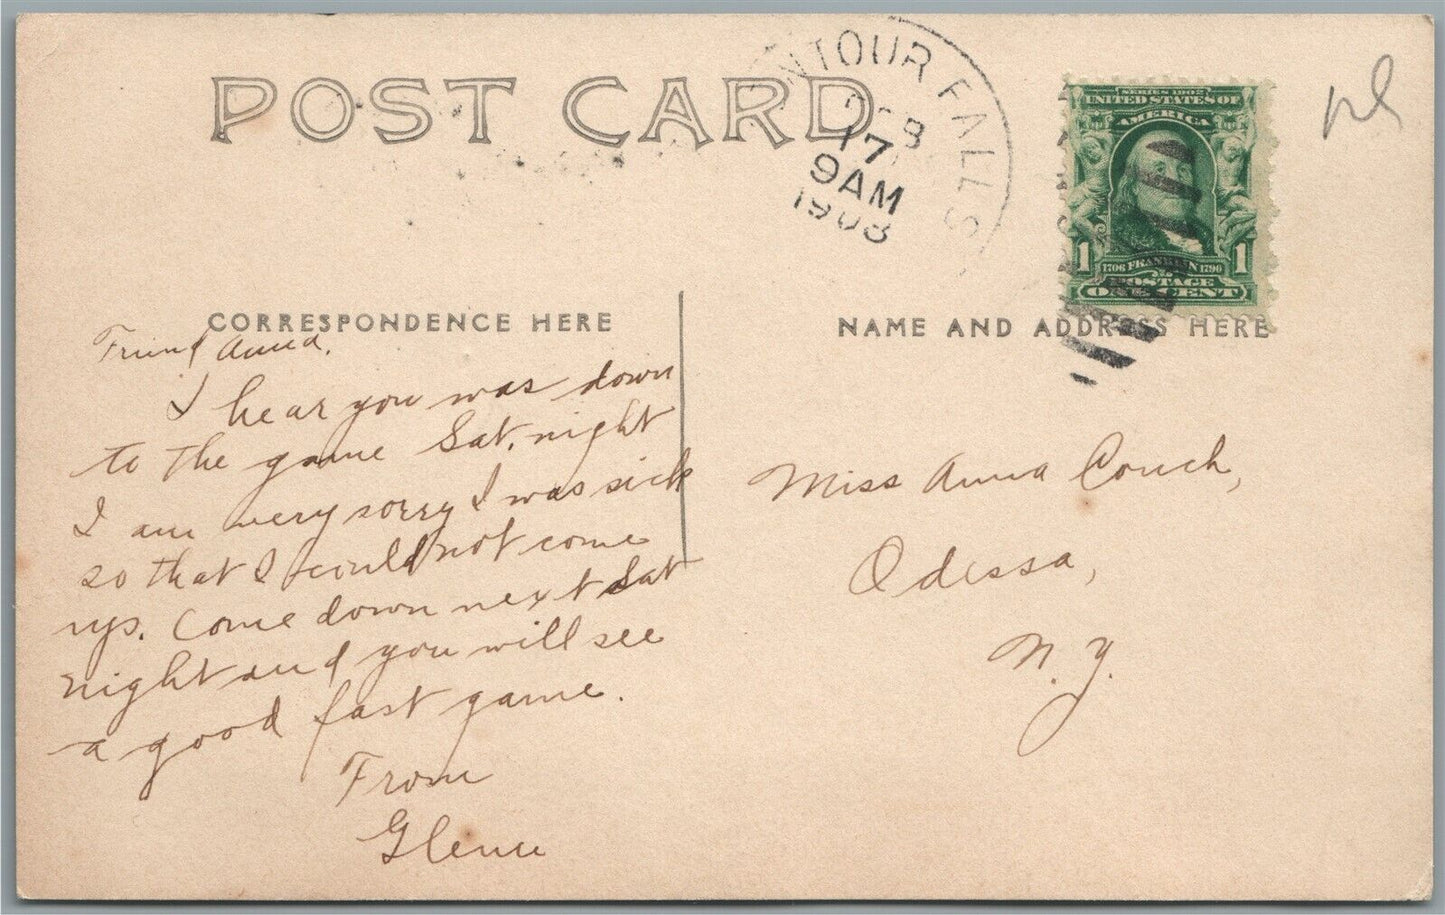 POST CARD
NTOUR FALLS
17
9AM
1908
SERIES 1902
UNITED STATES OF
AMERICA
1 1706 FRANKLIN 1790 1
POSTAGE
ONE CENT
CORRESPONDENCE HERE
NAME AND ADDRESS HERE
Friend Anna,
I hear you was down
to the game Sat. night
I am very sorry I was sick
so that I could not come
up. Come down next Sat
night and you will see
a good fast game.
From
Glenn
Miss Anna Couch,
Odessa,
N.Y.